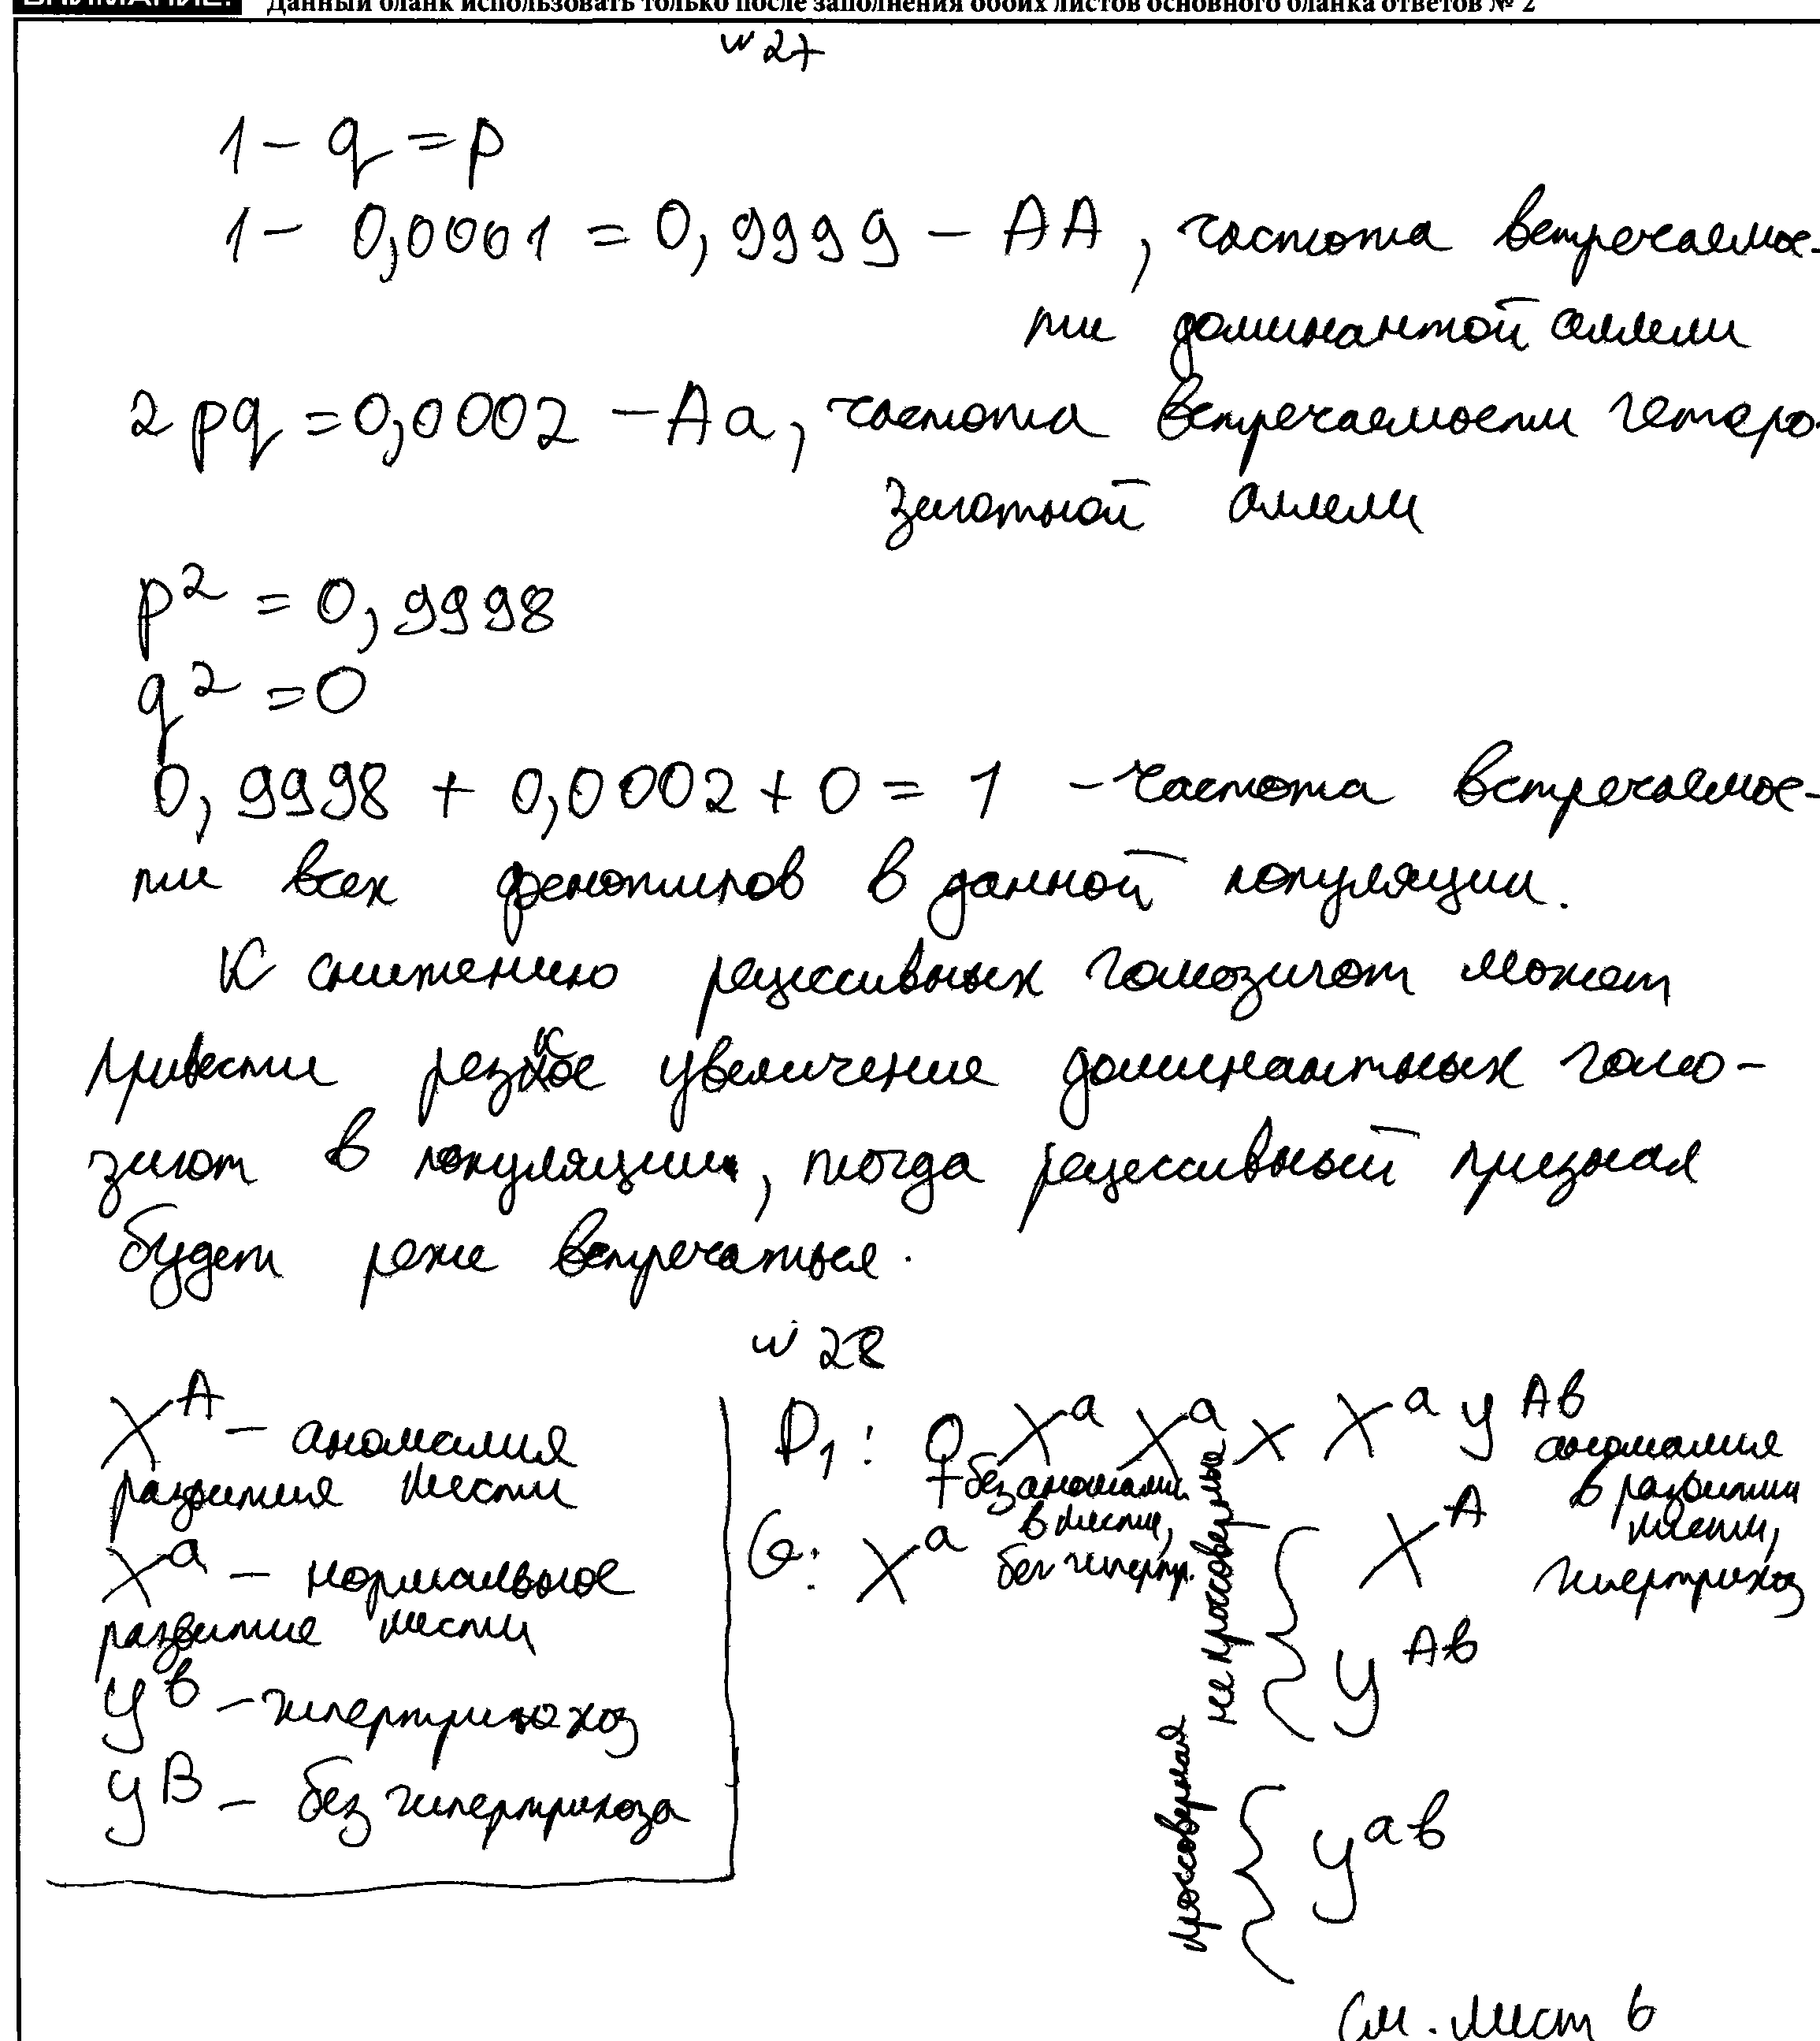 ВНИМАНИЕ! Данный бланк использовать только после заполнения обоих листов основного бланка ответов № 2
№27
1 - q = p
1 - 0,0001 = 0,9999 - AA, частота встречаемос-
ти доминантой аллели
2pq = 0,0002 - Aa, частота встречаемости гетеро-
зиготной аллели
p² = 0,9998
q² = 0
0,9998 + 0,0002 + 0 = 1 - частота встречаемос-
ти всех фенотипов в данной популяции.
К снижению рецессивных гомозигот может
привести резкое увеличение доминантных гомо-
зигот в популяции, тогда рецессивный признак
будет реже встречаться.
№28
X^A - аномалия
развития кисти
X^a - нормальное
развитие кисти
y^в - гипертрихоз
y^В - без гипертрихоза
P₁: ♀ X^a X^a x X^a y^Aв
без аномалии
в кисти,
без гипертр.
аномалия
в развитии
кисти,
гипертрихоз
G: X^a
не кроссоверные { X^A
y^Aв
кроссоверная { y^aв
См. лист 6